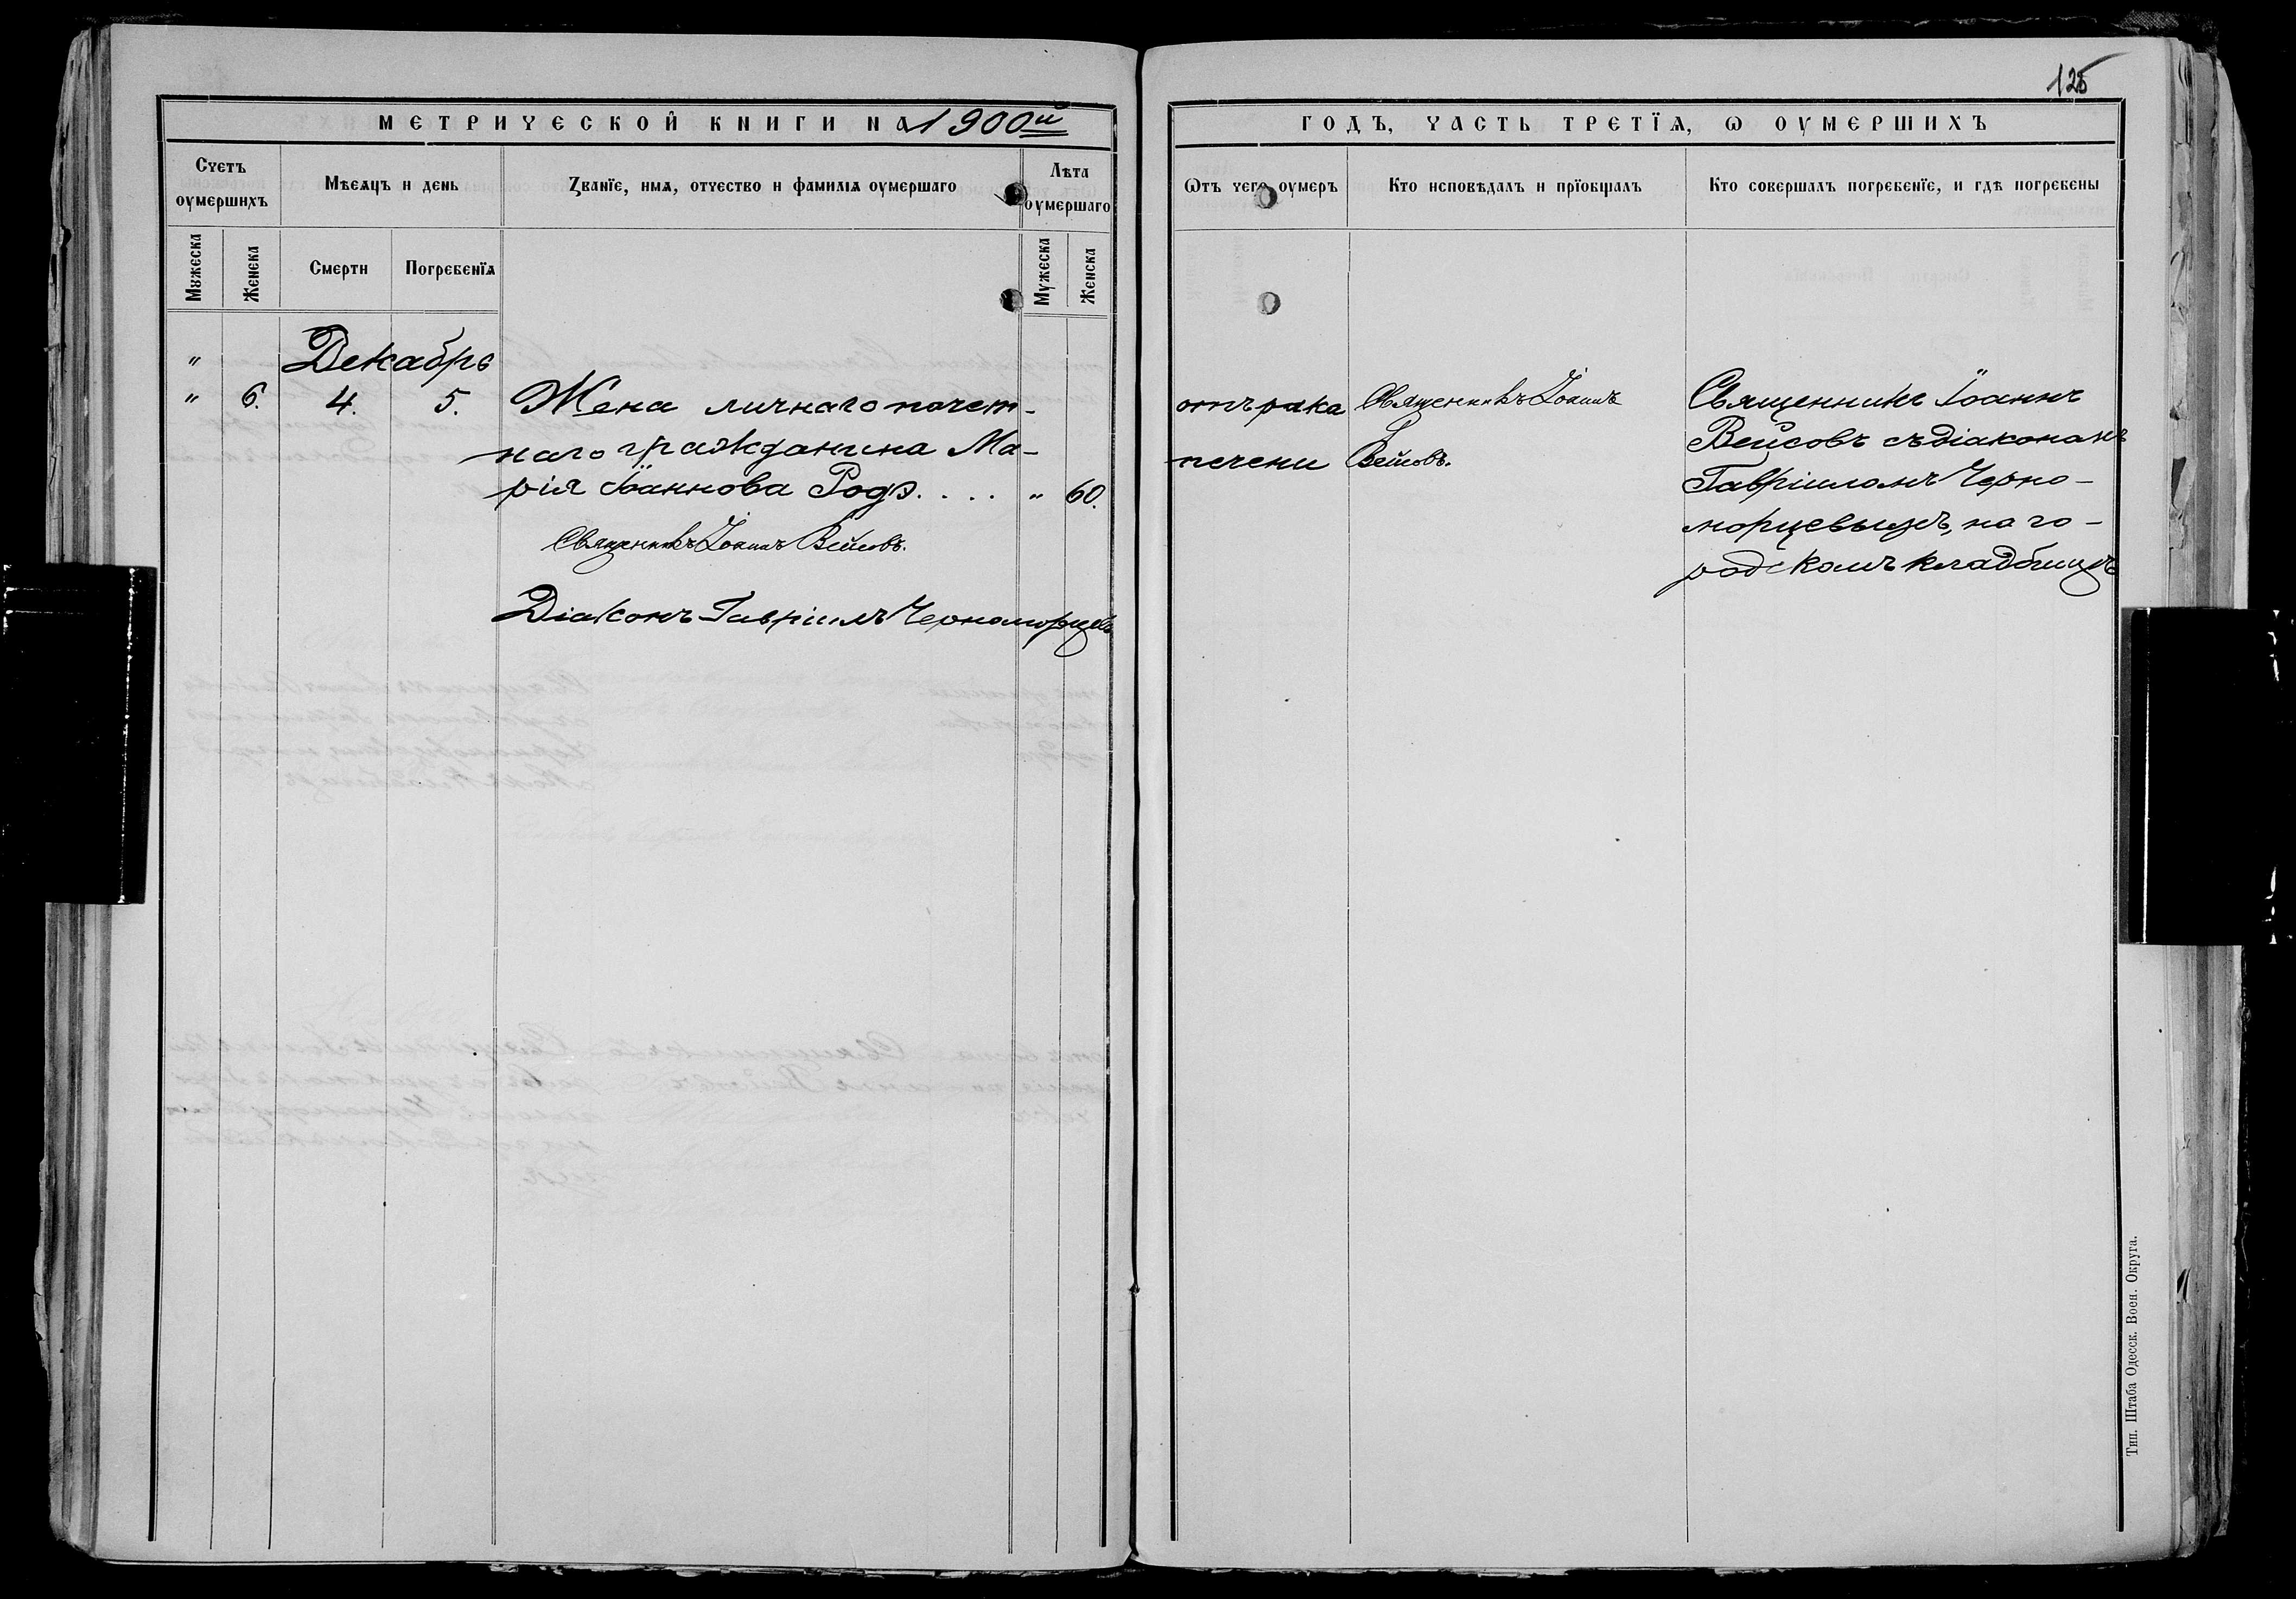 125
МЕТРИЧЕСКОЙ КНИГИ НА 1900й
ГОДЪ, ЧАСТЬ ТРЕТЇѦ, Ѡ ОУМЕРШИХЪ
Счетъ оумершихъ
Мѣсѧцъ и день
Званїе, имѧ, отчество и фамилїѧ оумершаго
Лѣта оумершаго
Ѿтъ чего оумеръ
Кто исповѣдалъ и прїобщалъ
Кто совершалъ погребенїе, и гдѣ погребены
Мужеска
Женска
Смерти
Погребенїѧ
Мужеска
Женска
" Декабрь
" 6. 4. 5. Жена личнаго почет-
наго гражданина Ма-
рія Іоаннова Родэ.... " 60.
Священникъ Іоаннъ Вейсовъ.
Діаконъ Гавріилъ Черноморцевъ
отъ рака
печени
Священникъ Іоаннъ
Вейсовъ.
Священникъ Іоаннъ
Вейсовъ съ діакономъ
Гавріиломъ Черно-
морцевымъ, на го-
родскомъ кладбищѣ
Тип. Штаба Одесск. Воен. Округа.